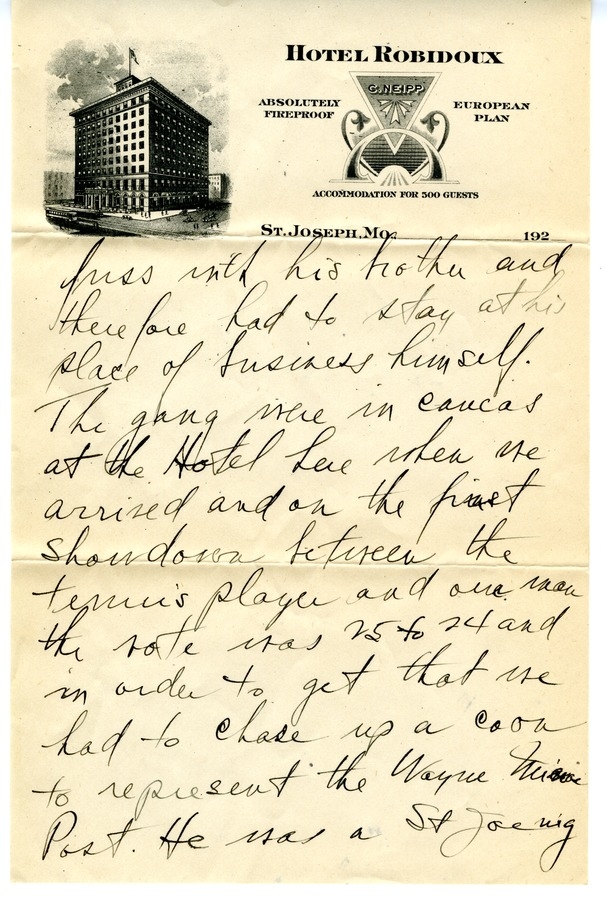 HOTEL ROBIDOUX
C. NEIPP
ABSOLUTELY FIREPROOF
EUROPEAN PLAN
ACCOMMODATION FOR 500 GUESTS
ST. JOSEPH, MO. 192
fuss with his brother and
therefore had to stay at his
place of business himself.
The gang were in caucas
at the Hotel here when we
arrived and on the first
showdown between the
tennis player and our man
the vote was 25 to 24 and
in order to get that we
had to chase up a coon
to represent the Wayne
Post. He was a St Joe nig